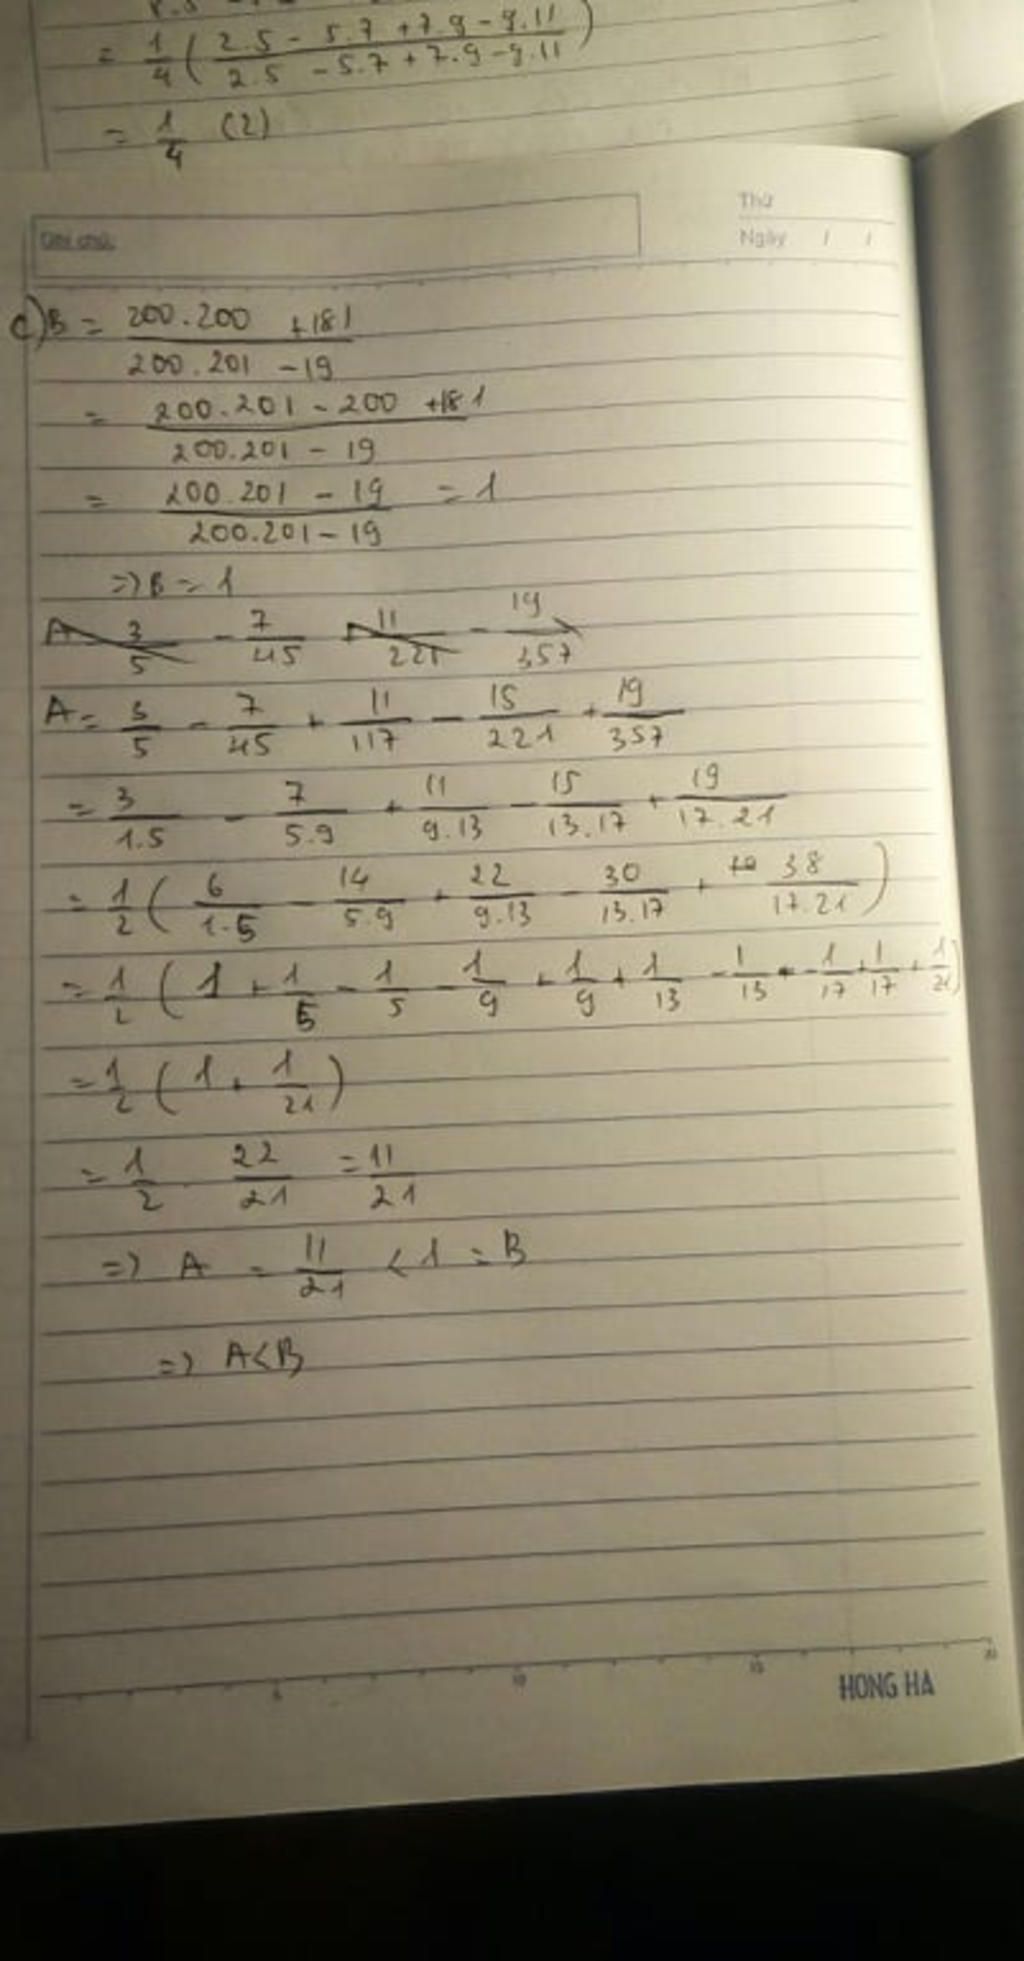 = 1/4 ( (2.5 - 5.7 + 7.9 - 9.11)/(2.5 - 5.7 + 7.9 - 9.11) )
= 1/4 (2)
Thứ
Ghi chú:
Ngày / /
c) B = (200.200 + 181)/(200.201 - 19)
= (200.201 - 200 + 181)/(200.201 - 19)
= (200.201 - 19)/(200.201 - 19) = 1
=> B = 1
A 3/5 - 7/45 + 11/221 - 19/357
A = 3/5 - 7/45 + 11/117 - 15/221 + 19/357
= 3/1.5 - 7/5.9 + 11/9.13 - 15/13.17 + 19/17.21
= 1/2 ( 6/1.5 - 14/5.9 + 22/9.13 - 30/13.17 + 38/17.21 )
= 1/2 ( 1 + 1/5 - 1/5 - 1/9 + 1/9 + 1/13 - 1/13 - 1/17 + 1/17 + 1/21 )
= 1/2 ( 1 + 1/21 )
= 1/2 . 22/21 = 11/21
=> A = 11/21 < 1 = B
=> A < B
5 10 15 20
HONG HA